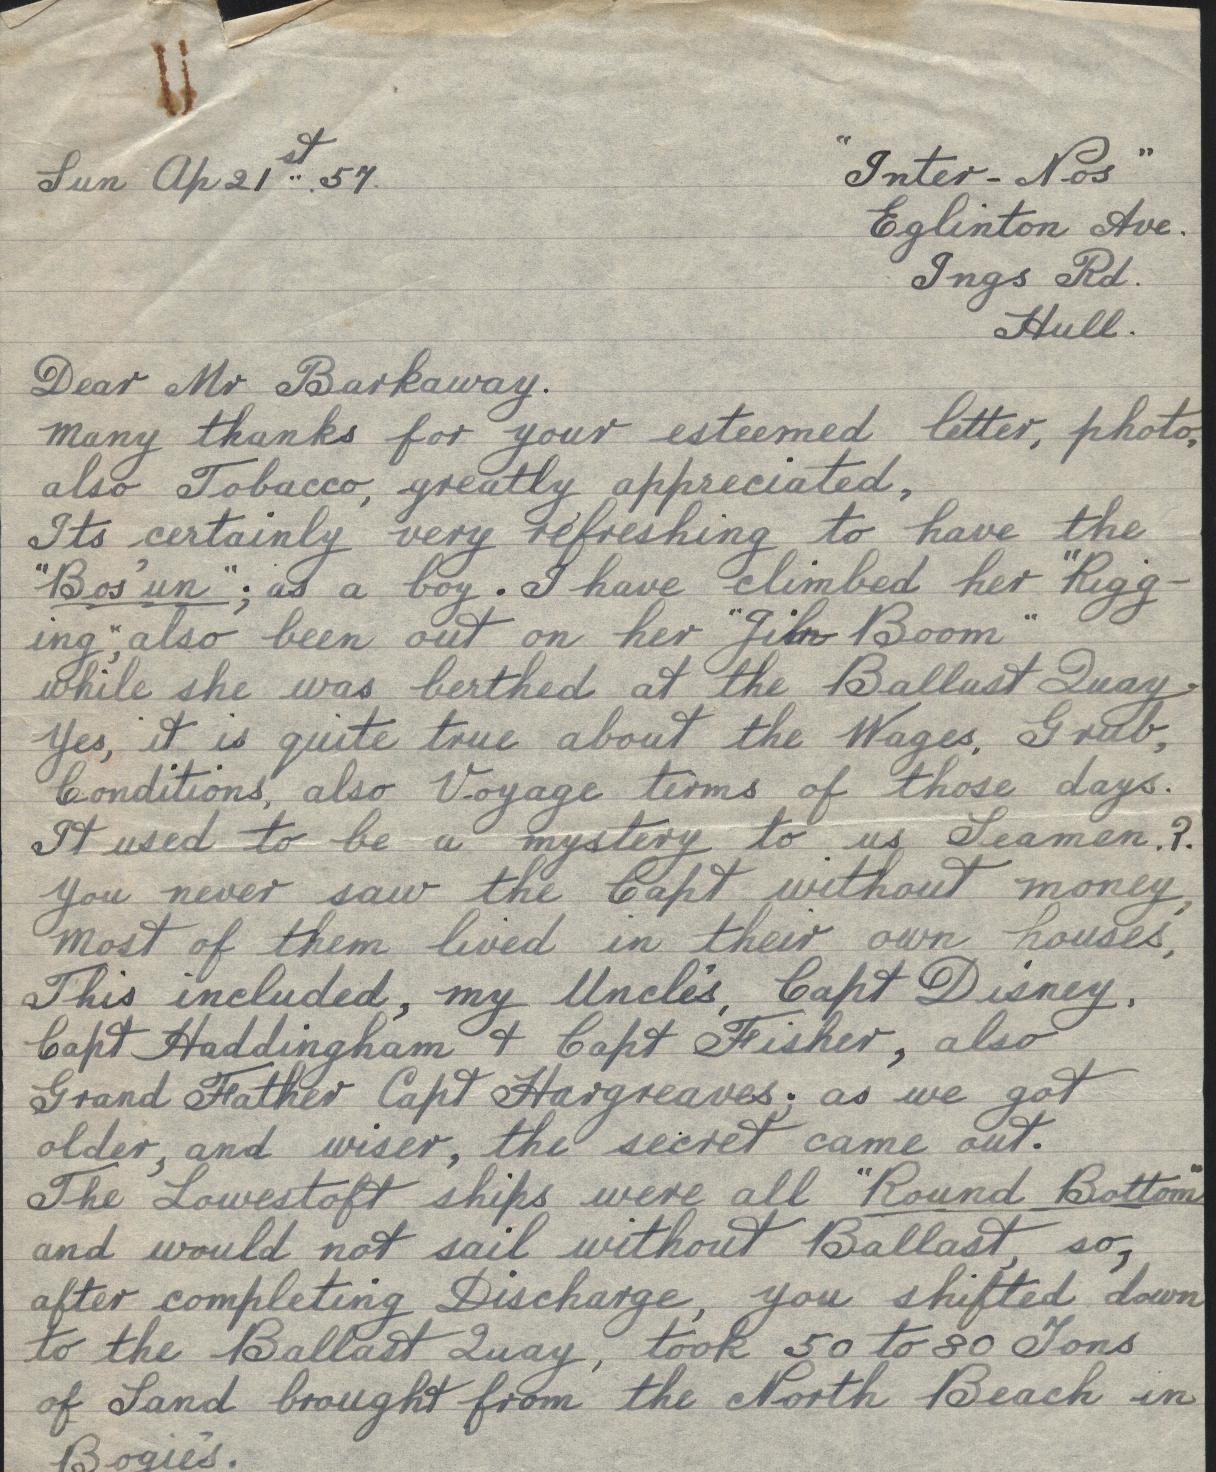 Sun Ap 21st. 57.
"Inter-Nos"
Eglinton Ave.
Ings Rd.
Hull.
Dear Mr Barkaway.
Many thanks for your esteemed letter, photo,
also Tobacco, greatly appreciated,
Its certainly very refreshing to have the
"Bos'un"; as a boy. I have climbed her "Rigg-
ing", also been out on her "Jib Boom"
while she was berthed at the Ballast Quay.
Yes, it is quite true about the Wages, Grub,
Conditions, also Voyage terms of those days.
It used to be a mystery to us Seamen.?.
You never saw the Capt without money,
most of them lived in their own houses,
This included, my Uncle's, Capt Disney,
Capt Haddingham & Capt Fisher, also
Grand Father Capt Hargreaves; as we got
older, and wiser, the secret came out.
The Lowestoft ships were all "Round Bottom"
and would not sail without Ballast, so,
after completing Discharge, you shifted down
to the Ballast Quay, took 50 to 80 Tons
of Sand brought from the North Beach in
Bogie's.